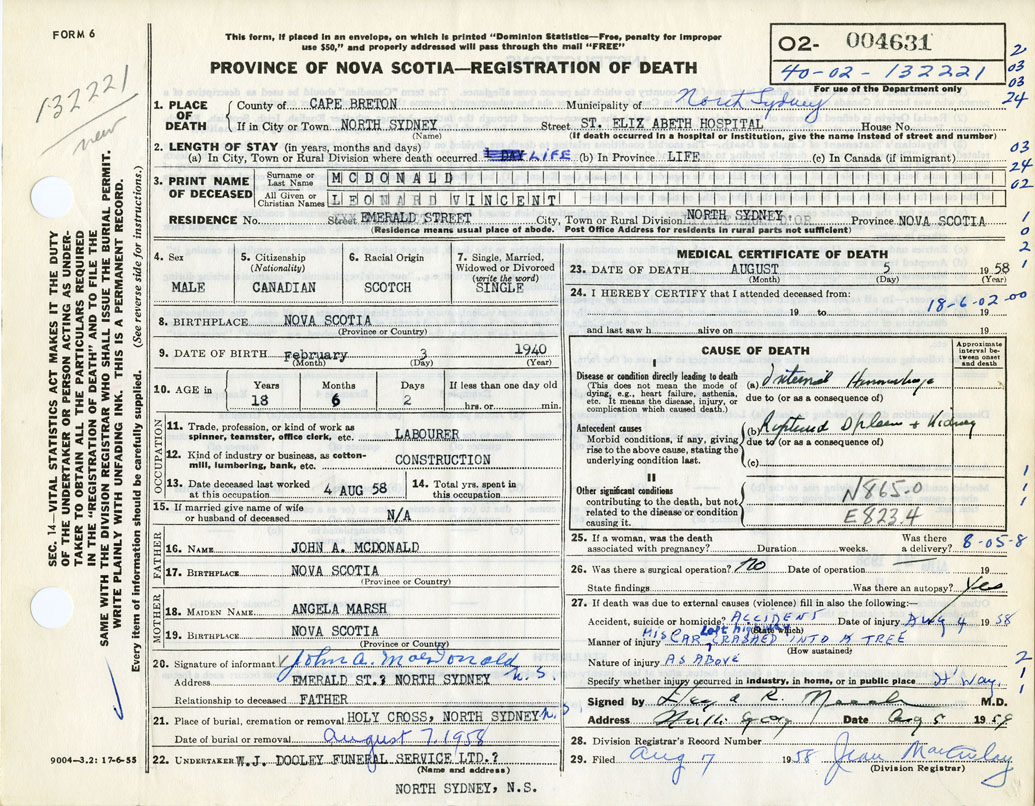 FORM 6
This form, if placed in an envelope, on which is printed "Dominion Statistics—Free, penalty for improper
use $50," and properly addressed will pass through the mail "FREE"
PROVINCE OF NOVA SCOTIA—REGISTRATION OF DEATH
02- 004631
40-02-132221
For use of the Department only
2
03
03
24
132221
new
1. PLACE OF DEATH
County of CAPE BRETON Municipality of North Sydney
If in City or Town NORTH SYDNEY Street ST. ELIZ ABETH HOSPITAL House No.
(Name) (If death occurred in a hospital or institution, give the name instead of street and number)
2. LENGTH OF STAY (in years, months and days)
(a) In City, Town or Rural Division where death occurred LIFE (b) In Province LIFE (c) In Canada (if immigrant)
03
24
02
3. PRINT NAME OF DECEASED
Surname or Last Name MCDONALD
All Given or Christian Names LEONARD VINCENT
RESIDENCE No. Street EMERALD STREET City, Town or Rural Division NORTH SYDNEY Province NOVA SCOTIA
(Residence means usual place of abode. Post Office Address for residents in rural parts not sufficient)
1
0
2
1
4. Sex
MALE
5. Citizenship
(Nationality)
CANADIAN
6. Racial Origin
SCOTCH
7. Single, Married,
Widowed or Divorced
(write the word)
SINGLE
8. BIRTHPLACE NOVA SCOTIA
(Province or Country)
9. DATE OF BIRTH February 3 1940
(Month) (Day) (Year)
10. AGE in Years Months Days If less than one day old
18 6 2 hrs. or min.
OCCUPATION
11. Trade, profession, or kind of work as
spinner, teamster, office clerk, etc. LABOURER
12. Kind of industry or business, as cotton-
mill, lumbering, bank, etc. CONSTRUCTION
13. Date deceased last worked
at this occupation 4 AUG 58
14. Total yrs. spent in
this occupation
15. If married give name of wife
or husband of deceased N/A
FATHER
16. NAME JOHN A. MCDONALD
17. BIRTHPLACE NOVA SCOTIA
(Province or Country)
MOTHER
18. MAIDEN NAME ANGELA MARSH
19. BIRTHPLACE NOVA SCOTIA
(Province or Country)
20. Signature of informant John A. MacDonald
Address EMERALD ST.? NORTH SYDNEY N.S.
Relationship to deceased FATHER
21. Place of burial, cremation or removal HOLY CROSS, NORTH SYDNEY N.S
Date of burial or removal August 7, 1958
22. UNDERTAKER W.J. DOOLEY FUNERAL SERVICE LTD.?
(Name and address)
NORTH SYDNEY, N.S.
MEDICAL CERTIFICATE OF DEATH
23. DATE OF DEATH AUGUST 5 1958
(Month) (Day) (Year)
24. I HEREBY CERTIFY that I attended deceased from:
18-6-02-00
19 to 19
and last saw h alive on 19
CAUSE OF DEATH
Approximate
interval be-
tween onset
and death
I
Disease or condition directly leading to death
(This does not mean the mode of
dying, e.g., heart failure, asthenia,
etc. It means the disease, injury, or
complication which caused death.)
(a) Internal Hemorrhage
due to (or as a consequence of)
Antecedent causes
Morbid conditions, if any, giving
rise to the above cause, stating the
underlying condition last.
(b) Ruptured Spleen + Kidney
due to (or as a consequence of)
(c)
II
Other significant conditions
contributing to the death, but not
related to the disease or condition
causing it.
N865.0
E823.4
1
1
1
25. If a woman, was the death
associated with pregnancy? Duration weeks. Was there
a delivery? 8-05-8
26. Was there a surgical operation? No Date of operation — 19
State findings Was there an autopsy? Yes
27. If death was due to external causes (violence) fill in also the following:—
Accident, suicide or homicide? ACCIDENT Date of injury Aug 4 1958
(State which)
Manner of injury HIS CAR Left highway CRASHED INTO A TREE
(How sustained)
Nature of injury AS ABOVE
Specify whether injury occurred in industry, in home, or in public place H'way.
2
1
1
Signed by M.D.
Address Date Aug 5 1958
28. Division Registrar's Record Number
29. Filed Aug 7 1958 Jean
(Division Registrar)
SEC. 14—VITAL STATISTICS ACT MAKES IT THE DUTY
OF THE UNDERTAKER OR PERSON ACTING AS UNDER-
TAKER TO OBTAIN ALL THE PARTICULARS REQUIRED
IN THE "REGISTRATION OF DEATH" AND TO FILE THE
SAME WITH THE DIVISION REGISTRAR WHO SHALL ISSUE THE BURIAL PERMIT.
WRITE PLAINLY WITH UNFADING INK. THIS IS A PERMANENT RECORD.
Every item of information should be carefully supplied. (See reverse side for instructions.)
9004—3.2: 17-6-55